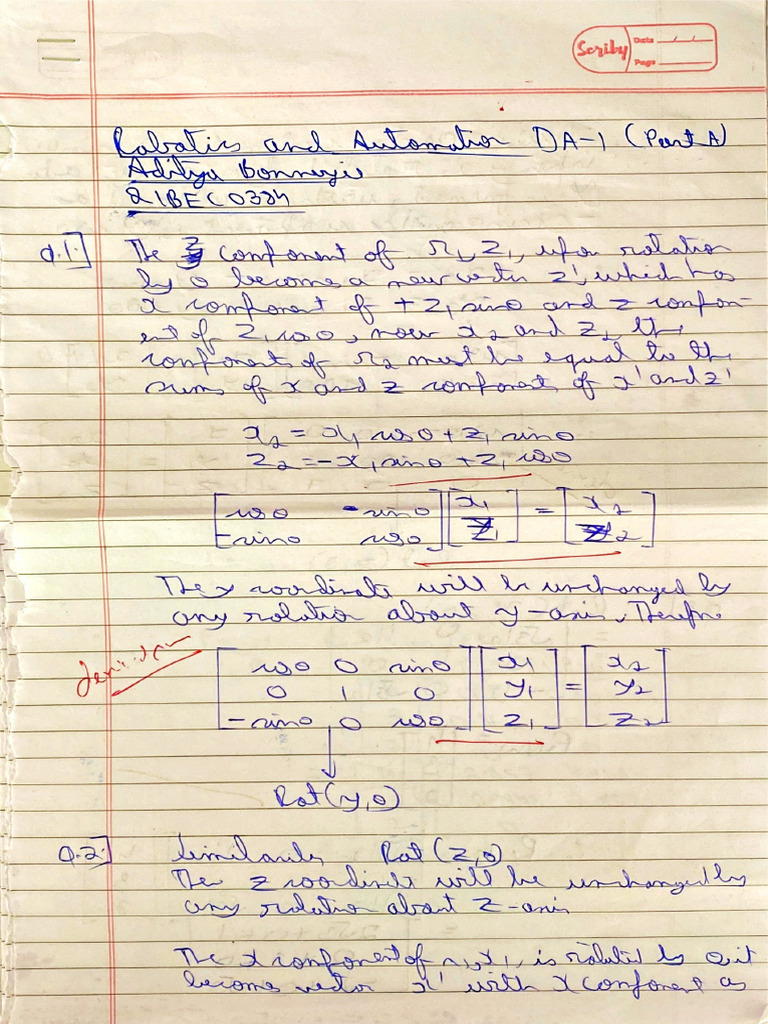 Scriby Date / /
Page
Robotics and Automation DA-1 (Part A)
Aditya
21BEC0384
Q.1.] The z component of r1, z1, upon rotation
by θ become a new vector z', which has
x component of + z1 sinθ and z compon-
ent of z1 cosθ, now x2 and z2 the
components of r2 must be equal to the
sums of x and z components of x' and z'
x2 = x1 cosθ + z1 sinθ
z2 = -x1 sinθ + z1 cosθ
[cosθ -sinθ] [x1] = [x2]
[-sinθ cosθ] [z1] [z2]
The y coordinate will be unchanged by
any rotation about y-axis. Therefore
[cosθ 0 sinθ] [x1] [x2]
[0 1 0] [y1] = [y2]
[-sinθ 0 cosθ] [z1] [z2]
Rot(y,θ)
Q.2] Similarly Rot(z,θ)
The z coordinate will be unchanged by
any rotation about z-axis
The x component of r1, x1, is rotated by θ it
become vector x' with x component as